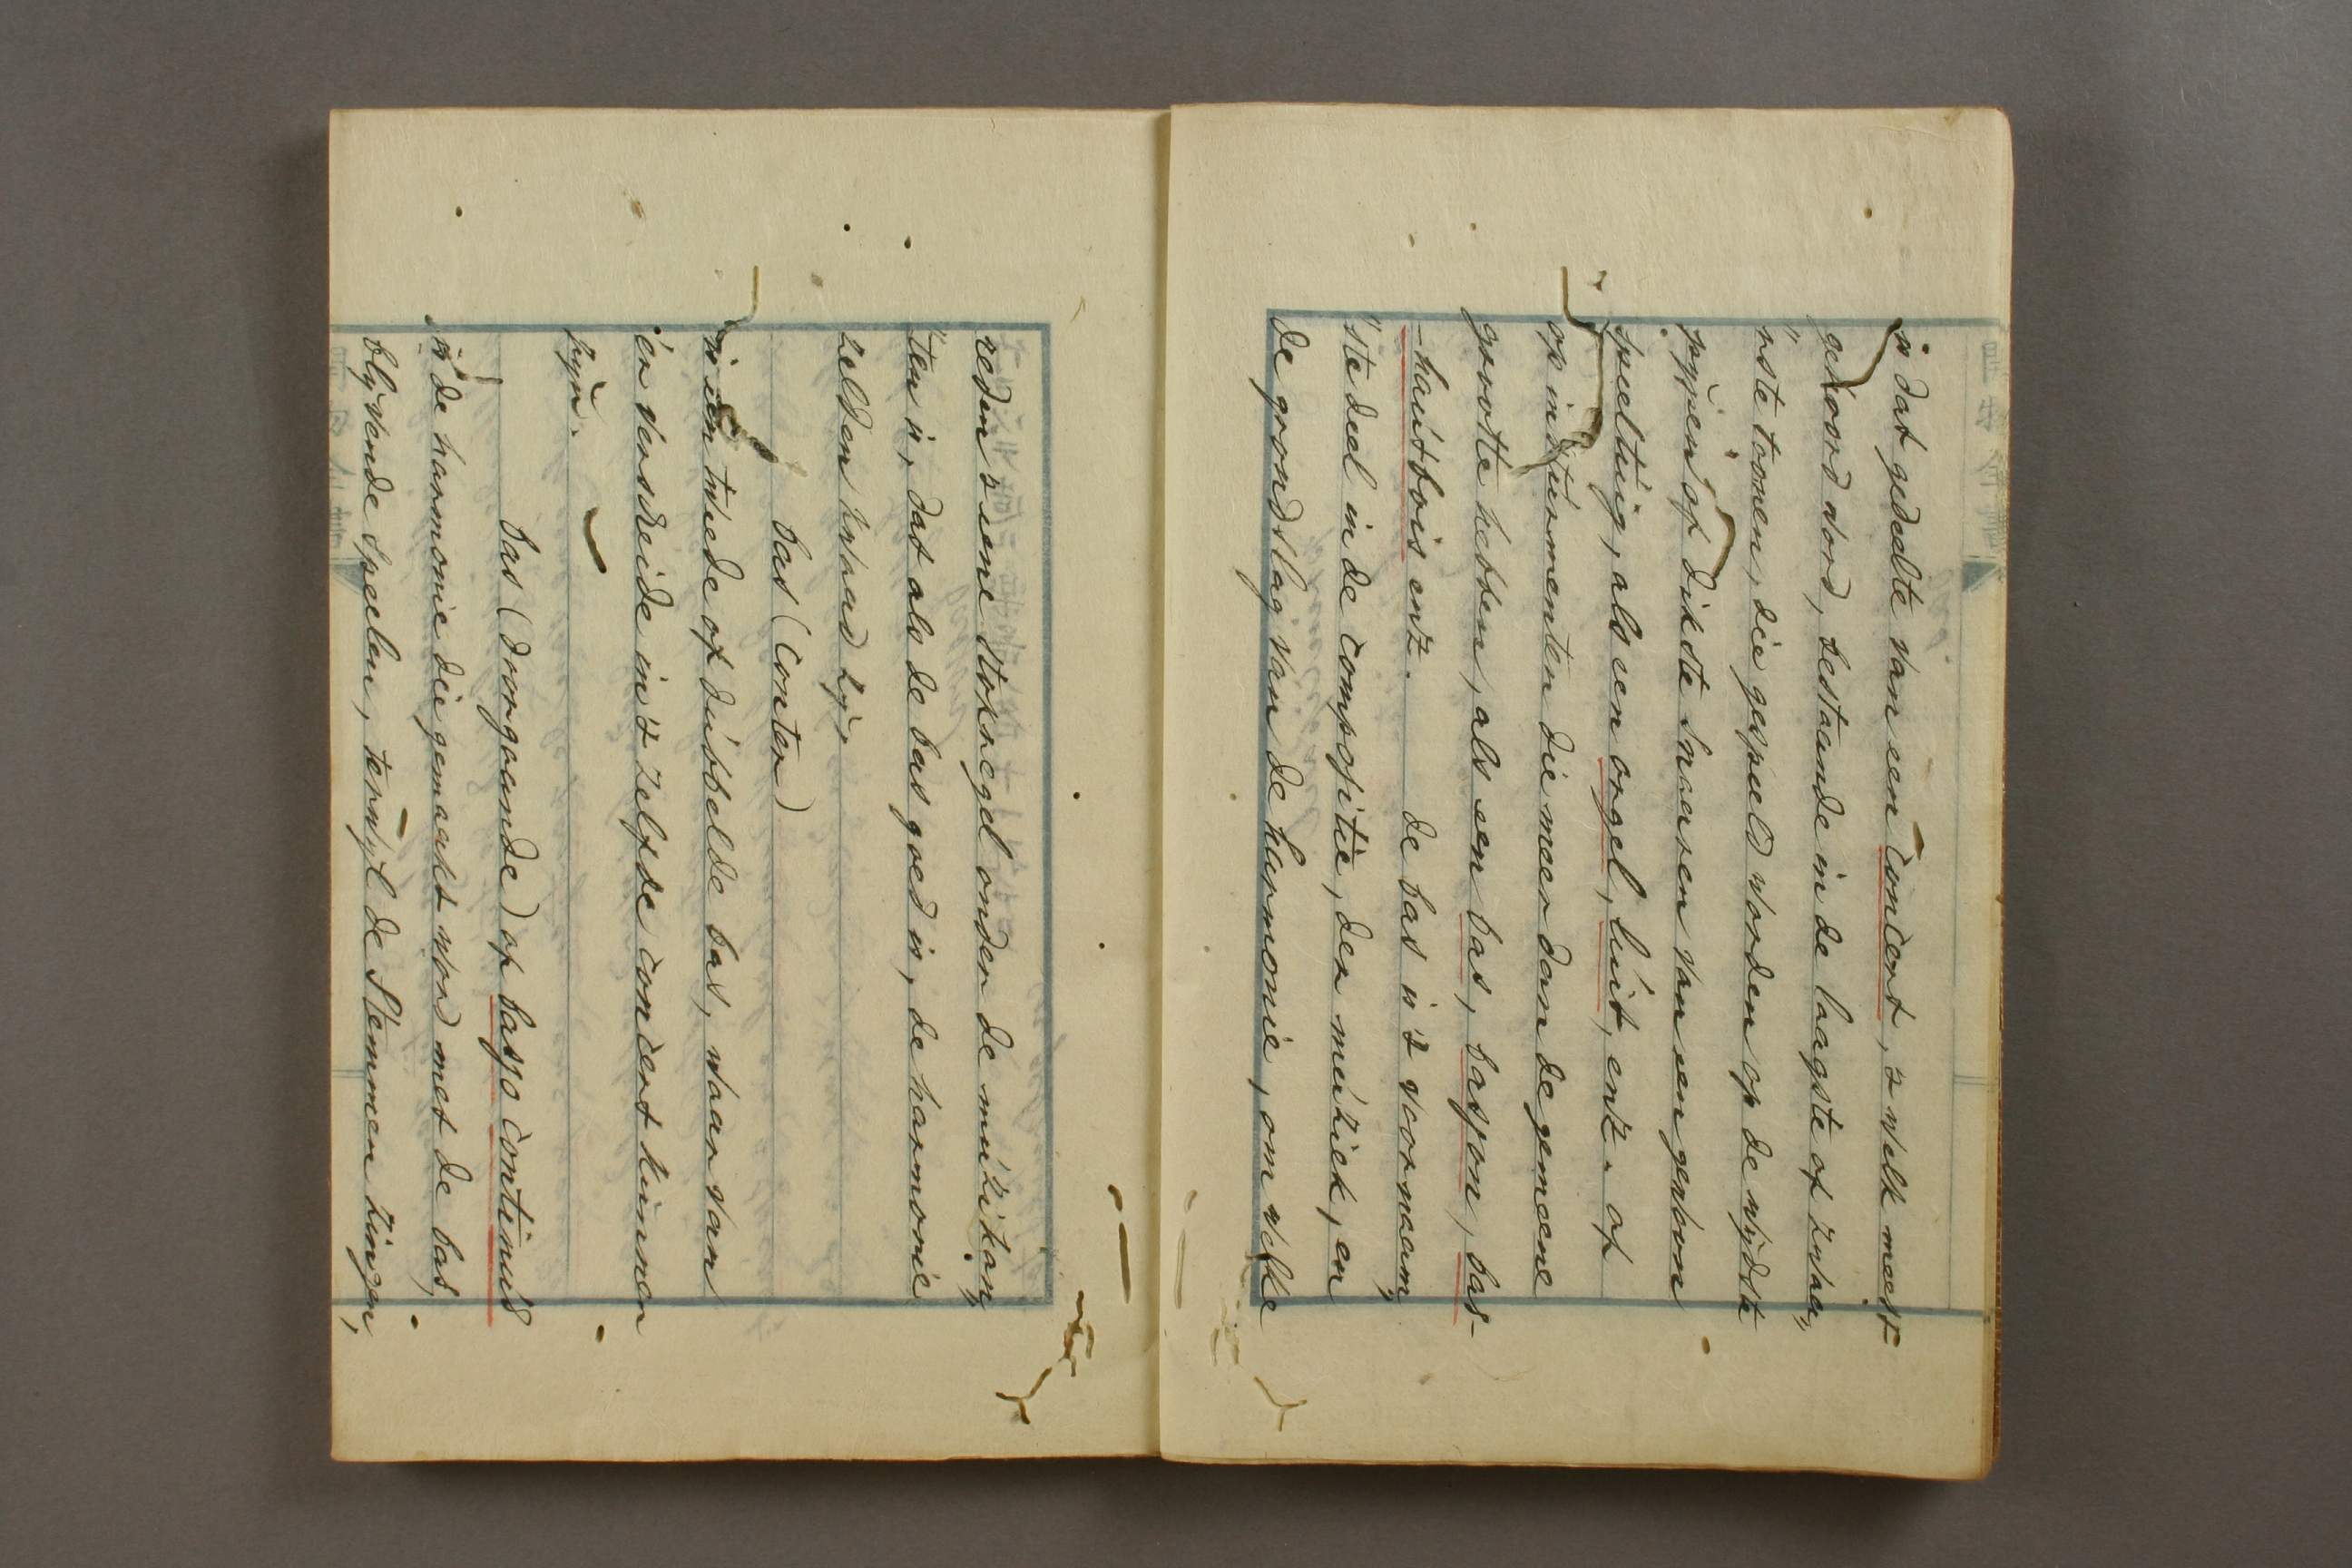 is dat gedeelte van een Concert, 't welk meest
gehoord word, bestaande in de laagste of zwaa„
„rste toonen, die gespeeld worden op de wijdste
pijpen of dikste snaaren van een gewoon
speeltuig, als een orgel, luit, enz. of
op insturmenten die meer dan de gemeene
grootte hebben, als een bas, basson, bas-
-hautbois enz. de bas is 't voornaam„
„ste deel in de compositie, der muziek, en
de grondslag van de harmonie, om welke
reden 't eene stokregel onder de muzikan„
„ten is, dat als de bas goed is, de harmonie
zelden kwaad zij,
bas (Conter)
is een twede of dubbelde bas, waar van
'er verscheide in 't zelfde concert kunnen
zijn.
bas (dorgaande) of basso continus
is de harmonie die gemaakt word met de bas,
blijvende speelen, terwijl de Stemmen zingen,